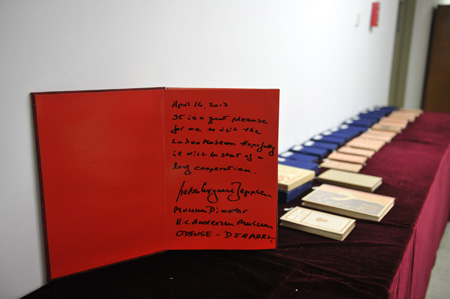 April 16, 2012
It is a great pleasure
for me to visit the
Museum Hopefully
it will be start of a
long cooperation.
Museum Director
H.C. Andersen Museum
ODENSE - DENMARK